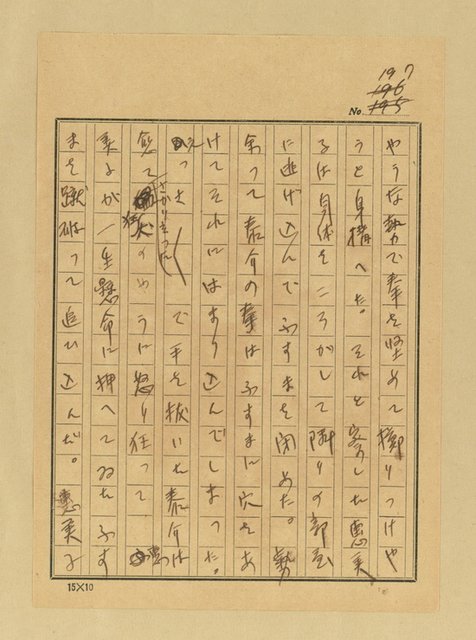 197
196
195
No.
やうな勢で拳を堅めて擲りつけや
うと身構へた。それと察した恵美
子は身体をころがして隣りの部屋
に逃げ込んでふすまを閉めた。勢
余って泰介の拳はふすまに穴をあ
けてそれにはまり込んでしまった。
で手を抜いた泰介は
狂犬のやうに怒り狂って 恵
美子が一生懸命に押へてゐたふす
まを蹴破って追ひ込んだ。恵美子
15×10